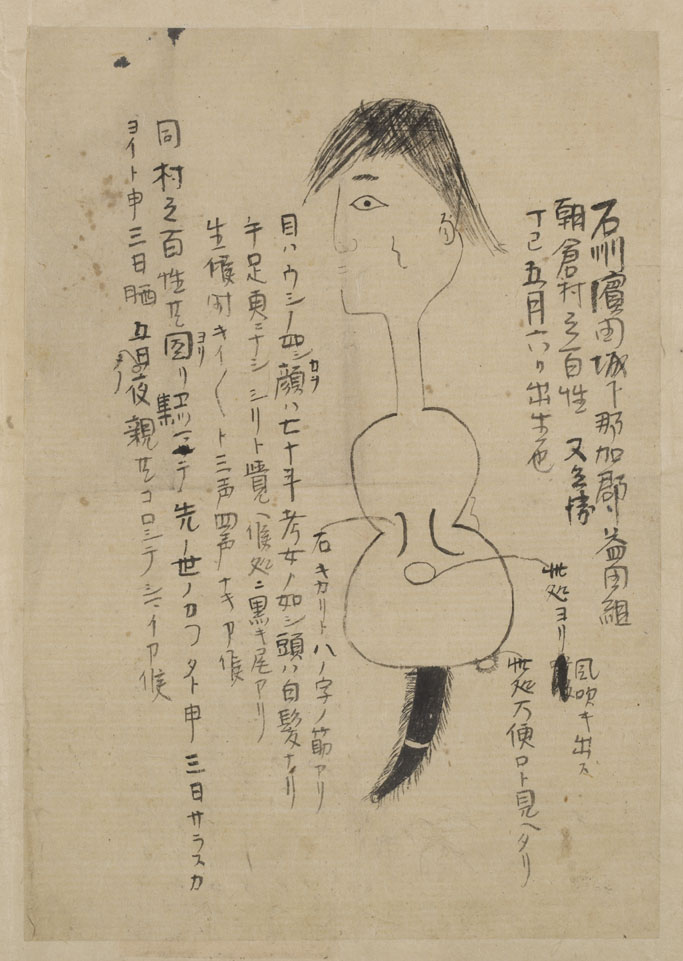 石州濱田城下那加郡益田組
朝倉村之百性 又兵衛
丁巳五月六日出生也
此処ヨリ
風吹キ出ス
此処大便口ト見ヘタリ
石 キカリト ハノ字ノ筋アリ
目ハウシノ如シ顔ハ七十年考女ノ如シ頭ハ白髪ナリ
カヲ
手足更ニナシ シリト覚ヘ候処ニ黒キ尾アリ
生候時キイ〱ト三声四声ナキ申候
同村之百性共図リ集リテ先ノ世ノカフタト申三日サラスカ
ヨリ
ヨイト申三日晒五日夜親共コロシテシマイ申候